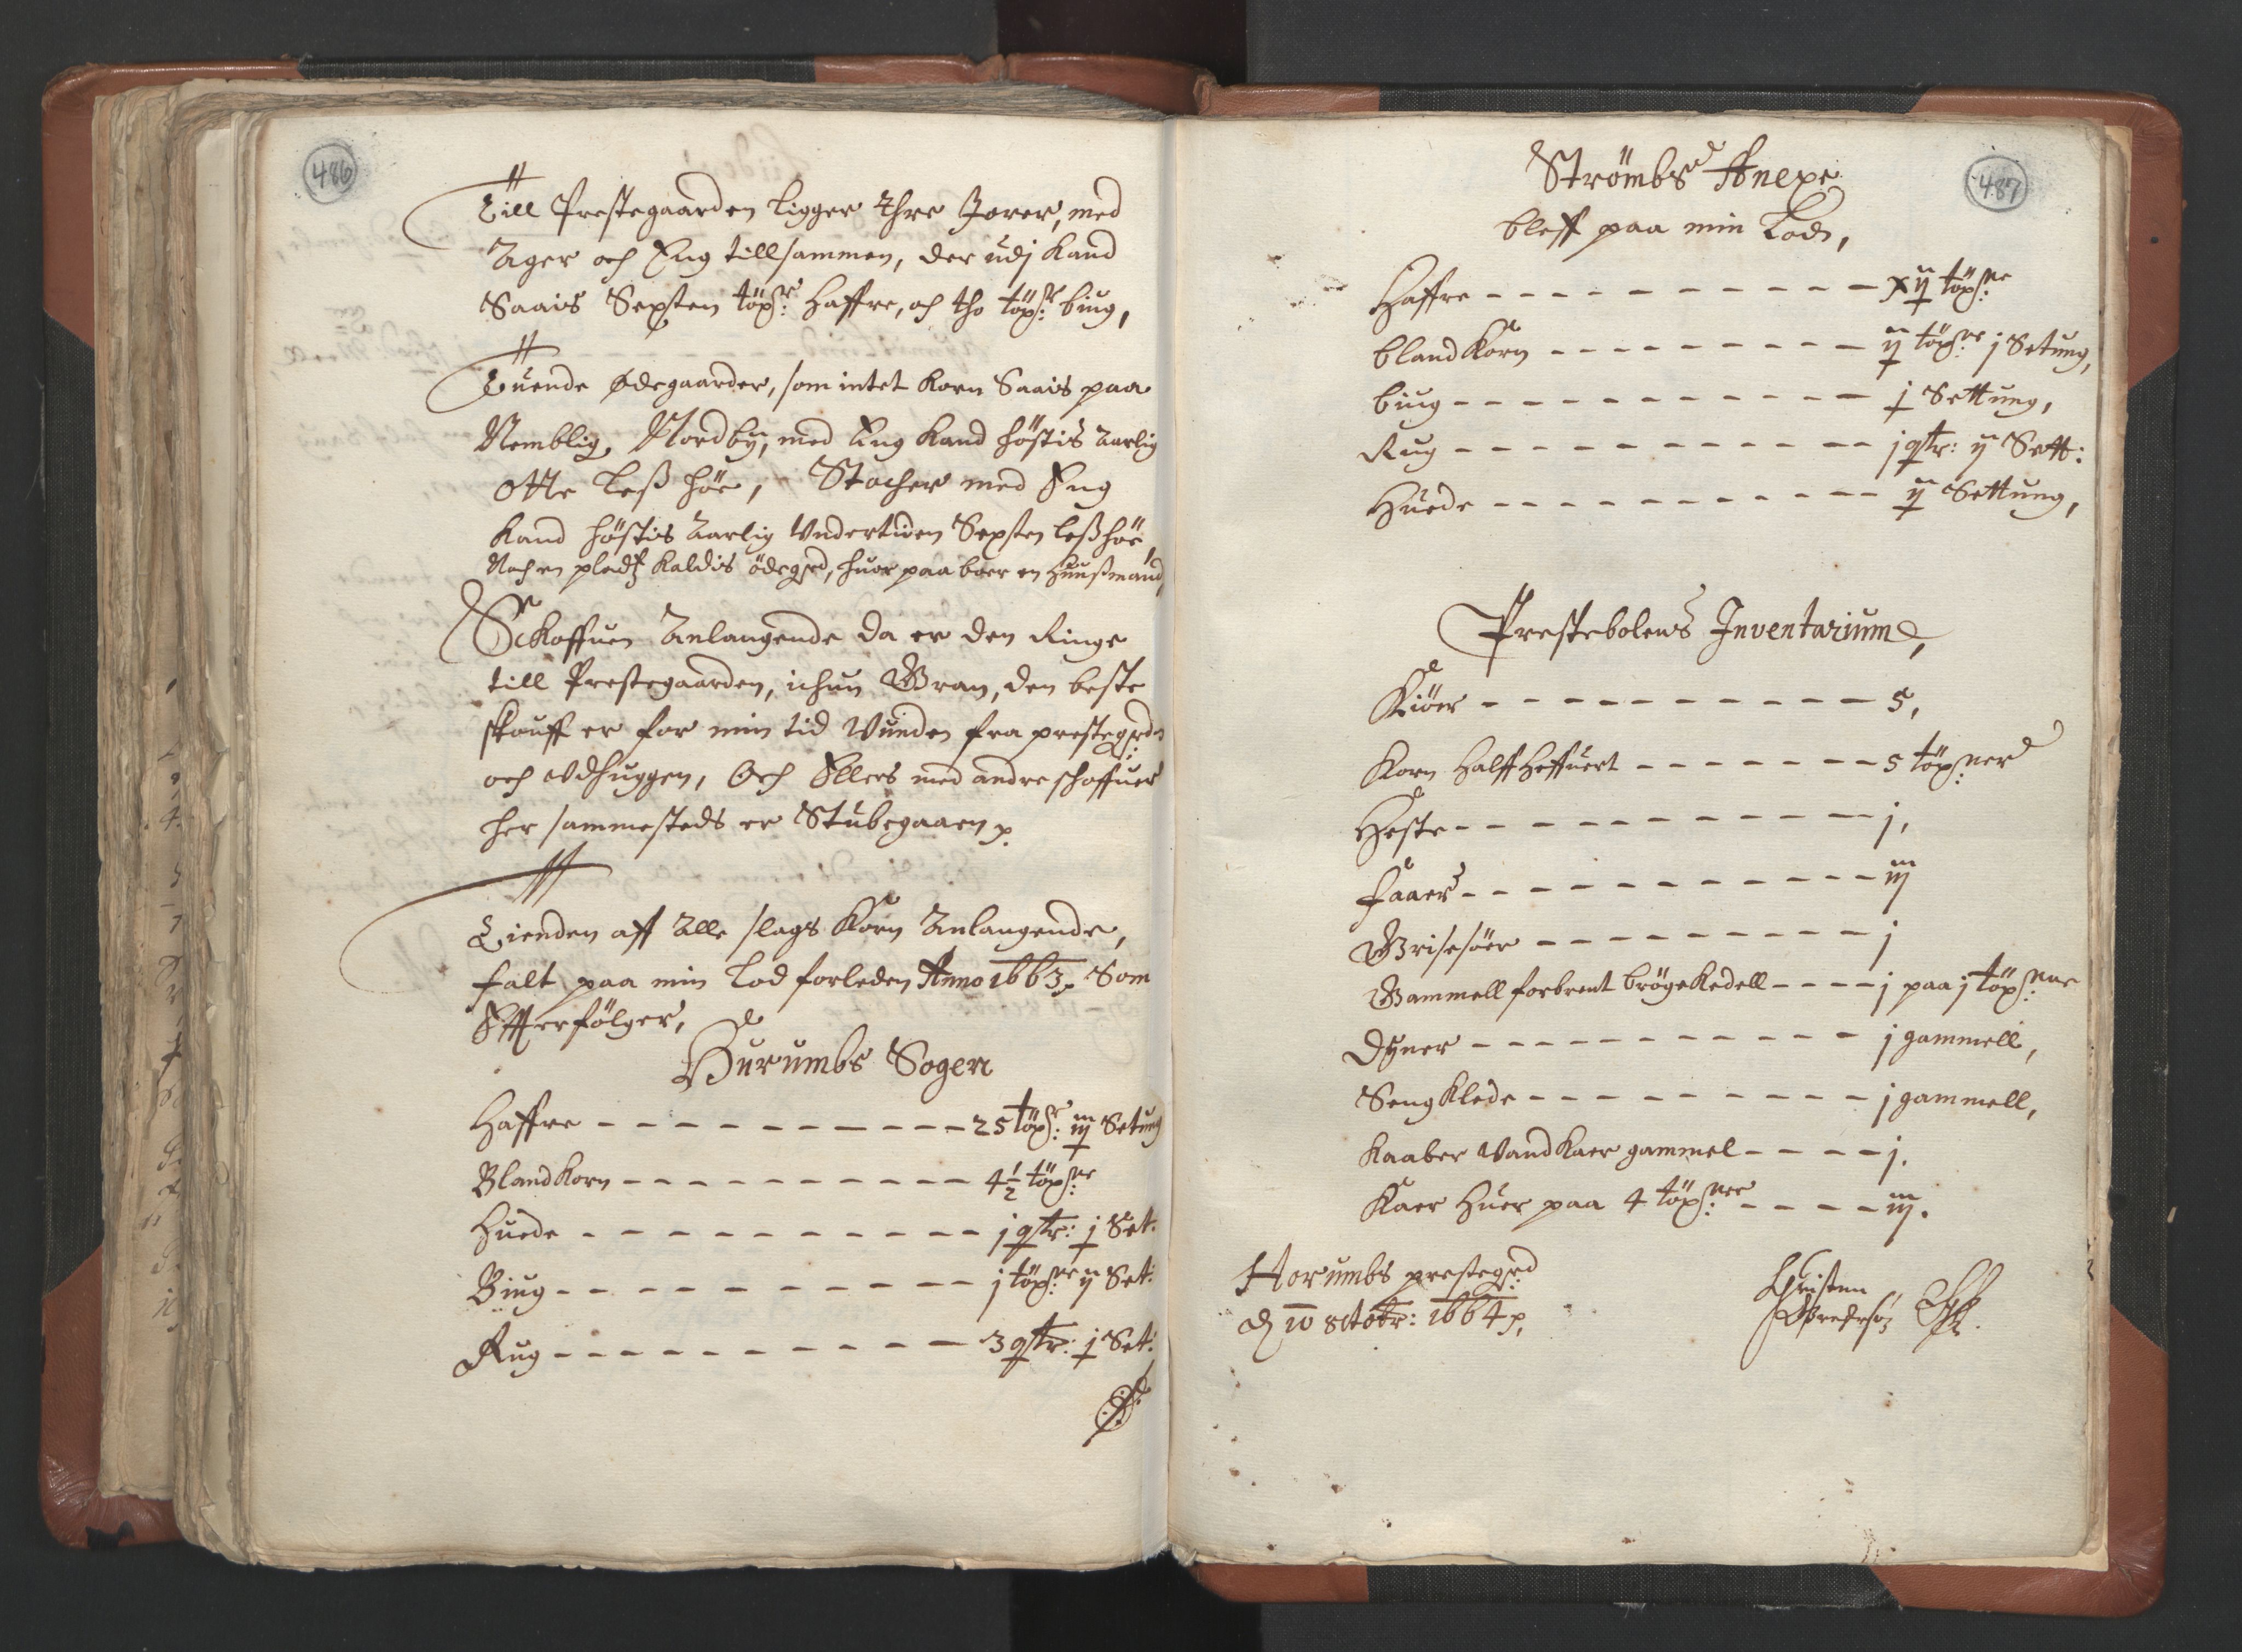 486
Till Prestegaarden ligger thre Jorer, med
Ager och Eng tillsammen, der udj kand
Saais Sexsten tøꝑs:ᵉʳ Haffre, och tho tøꝑs:ᵉʳ biug,
Tuende Ødegaarder, som intet Korn Saais paa
Nemblig, Nordby, med Eng kand høstis Aarlig
otte Leß høe, Stocher med Eng
kand høstis Aarlig Undertiden Sexsten leß høe,
Noch en pladtz kaldis ødegrd, huor paa boer en Huußmand,
Schoffuen Anlangende da er den Ringe
till Prestegaarden, ichun Gran, den beste
skouff er for min tid Vunden fra prestegrden
och Udhuggen, Och Ellers med andre schoffuer
her sammesteds er Stubegaaen p.
Tienden aff Alle slags Korn Anlangende,
falt paa min Lod forleden Anno 1663. Som
Effterfølger,
Hurumbs Sogen
Haffre - - - - - - - - - - 25 tøꝑs: iij Setung
Blandkorn - - - - - - - - - - 4½ tøꝑs:ᵉʳ
Huede - - - - - - - - - - j qtr: j Set.
Biug - - - - - - - - - - j tøꝑs:ᵉʳ ij Set:
Rug - - - - - - - - - - 3 qtr: j Set:
487
Strømbs Anexe
bleff paa min Lod,
Haffre - - - - - - - - - - xij tøꝑs:ᵉʳ
blandkorn - - - - - - - - - ij tøꝑs:ᵉʳ j Setung,
biug - - - - - - - - - - j Settung,
Rug - - - - - - - - - - j qtr: ij Sett:
Huede - - - - - - - - - - ij Settung,
Prestebolens Inventarium,
Kiøer - - - - - - - - - - 5,
Korn Halff Heffuert - - - - - - - 5 tøꝑs:ner
Heste - - - - - - - - - - j,
Faaer - - - - - - - - - - iij
Grisesøer - - - - - - - - - j
Gammell forbrent brøgekedell - - - - j paa j tøꝑs:ne
Dyner - - - - - - - - - - j gammell,
Sengklede - - - - - - - - - j gammell,
Kaaber Vandkaer gammel - - - - j.
Kaer Huer paa 4 tøꝑs:ner - - - - iij.
Horumbs prestegrd
d 10 8tobr: 1664 p.
Christen